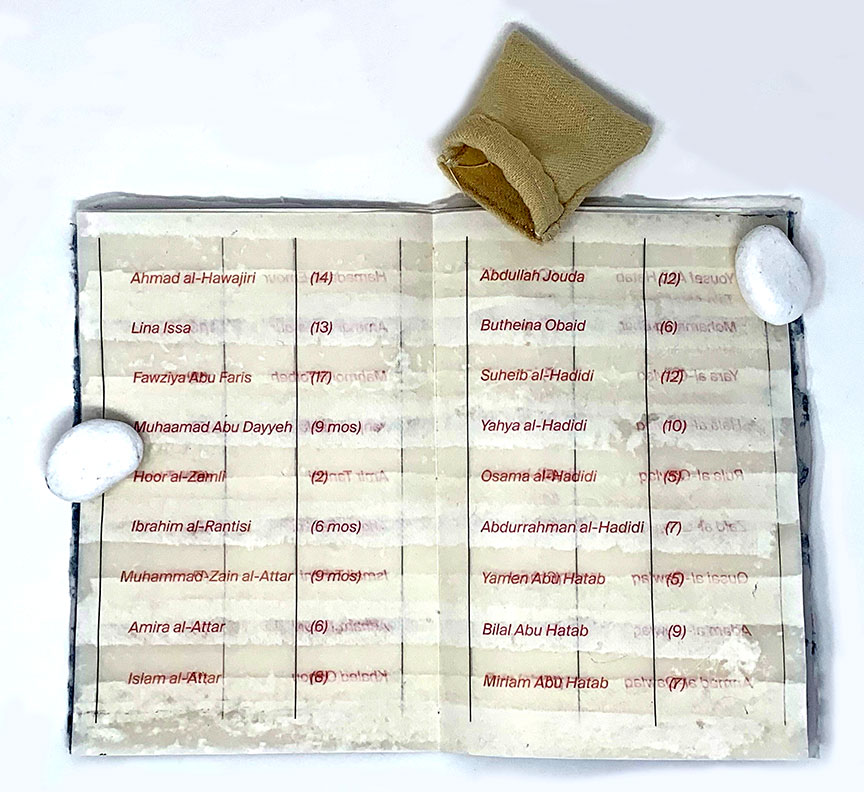 Ahmad al-Hawajiri (14)
Lina Issa (13)
Fawziya Abu Faris (17)
Muhaamad Abu Dayyeh (9 mos)
Hoor al-Zamli (2)
Ibrahim al-Rantisi (6 mos)
Muhammad-Zain al-Attar (9 mos)
Amira al-Attar (6)
Islam al-Attar (8)
Abdullah Jouda (12)
Butheina Obaid (6)
Suheib al-Hadidi (12)
Yahya al-Hadidi (10)
Osama al-Hadidi (5)
Abdurrahman al-Hadidi (7)
Yamen Abu Hatab (5)
Bilal Abu Hatab (9)
Miriam Abu Hatab (7)